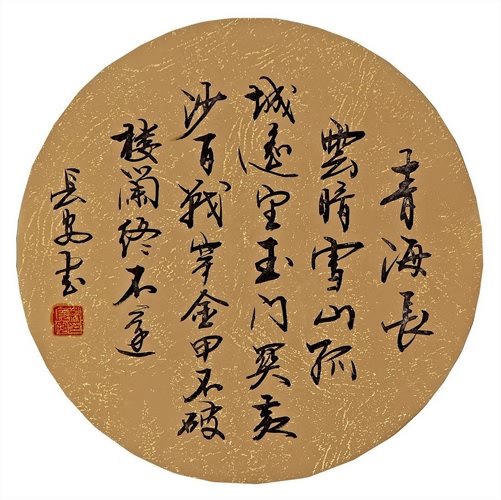 青海長
雲暗雪山孤
城遥望玉门関黄
沙百戰穿金甲不破
楼蘭终不還
長安書